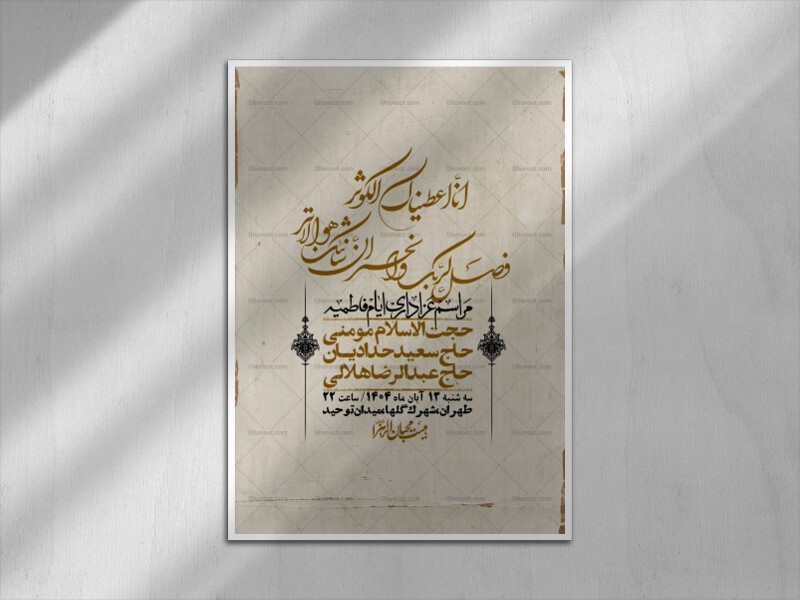 انا اعطیناک الکوثر
فصل لربک وانحر ان شانئک هوالابتر
مراسم عزاداری ایام فاطمیه
حجت الاسلام مومنی
حاج سعید حدادیان
حاج عبدالرضا هلالی
سه شنبه ۱۳ آبان ماه ۱۴۰۴/ ساعت ۲۲
طهران،شهرک گلها،میدان توحید
هیئت محبان الزهرا
Gbonoot.com